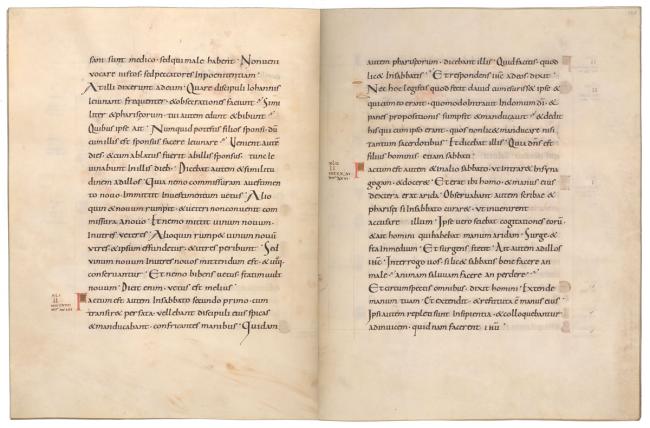 sani sunt medico · sed qui male habent · Non veni
vocare iustos · sed peccatores in poenitentiam ·
At illi dixerunt ad eum · Quare discipuli iohannis
ieiunant frequenter · & obsecrationes faciunt · Simi
liter & pharisęorum · tui autem edunt & bibunt ·
Quibus ipse ait · Numquid potestis filios sponsi · dū
cum illis est sponsus facere ieiunare · Venient autē
dies · & cum ablatus fuerit ab illis sponsus · tunc ie
iunabunt in illis dieb · Dicebat autem & similitu
dinem ad illos · Quia nemo commissuram a uestimen
to nouo inmittit in uestimentum uetus · Alio
quin & nouum rumpit · & ueteri non conuenit com
missura a nouo · Et nemo mittit uinum nouum
in utres ueteres · Alioquin rump& uinum nouū
utres · & ipsum effundetur · & utres peribunt · Sed
uinum nouum in utres nouos mittendum est · & utraq;
conseruantur · Et nemo bibens uetus statim uult
nouum · Dicit enim · uetus est melius ·
Factum est autem in sabbato secundo primo · cum
transir& per sata · uellebant discipuli eius spicas
& manducabant · confricantes manibus · Quidam
autem pharisęorum · dicebant illis · Quid facitis · quod
non lic& in sabbatis · Et respondens ihc̄ ad eos dixit ·
Nec hoc legistis quod fecit dauid cum esuriss& ipse &
qui cum eo erant · quomodo intrauit in domum dī · &
panes propositionis sumpsit & manducauit · & dedit
his qui cum ipso erant · quos non lic& manducare nisi
tantum sacerdotibus · Et dicebat illis · Quia dn̄s est
filius hominis · etiam sabbati ·
Factum est autem & in alio sabbato · ut intrar& in syna
gogam · & docer& · Et erat ibi homo · & manus eius
dextera erat arida · Obseruabant autem scribae &
pharisęi si in sabbato curar& · ut inuenirent
accusare illum · Ipse uero sciebat cogitationes eorū ·
& ait homini qui habebat manum aridam · Surge &
sta in medium · Et surgens stetit · Ait autem ad illos
ihc̄ · Interrogo uos · si lic& sabbatis bene facere an
male · animam saluam facere an perdere ·
Et circumspectis omnibus · dixit homini · Extende
manum tuam · Et extendit · & restituta ē manus eius ·
Ipsi autem repleti sunt insipientia · & colloquebantur
ad inuicem · quidnam facerent ihū ·